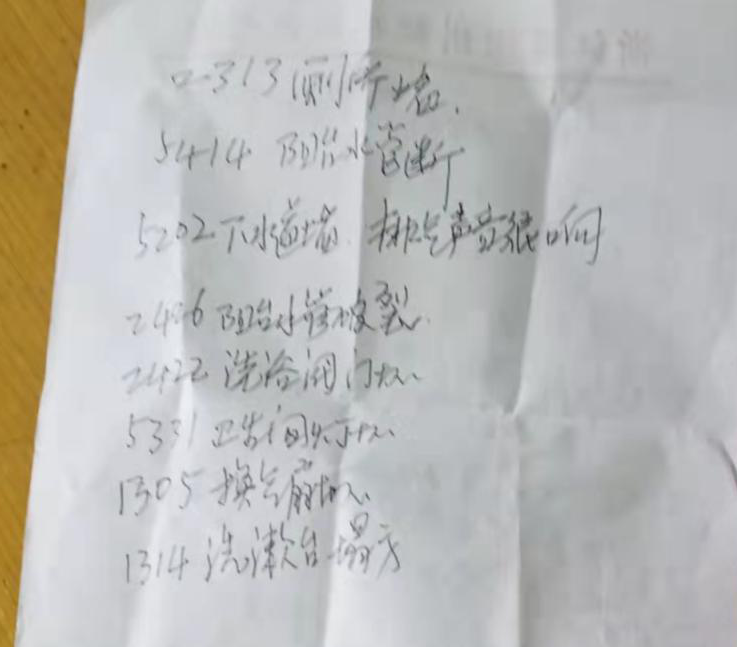 2-313厕所堵.
5414 阳台水管断
5202下水道堵. 排气声音很响
2426 阳台水管破裂.
2422 洗浴阀门坏.
5331 卫生间灯坏.
1305 换气扇坏.
1314 洗漱台塌方